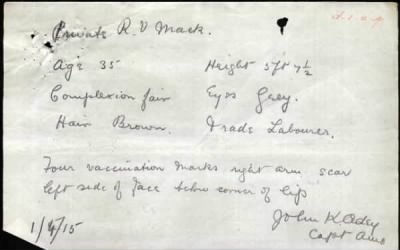 Private R. V Mack.
Age 35 Height 5ft 7½
Complexion fair Eyes Grey.
Hair Brown. Trade Labourer.
Four vaccination marks right arm scar
left side of face below corner of lip
John K Adey
1/4/15 Capt Amc